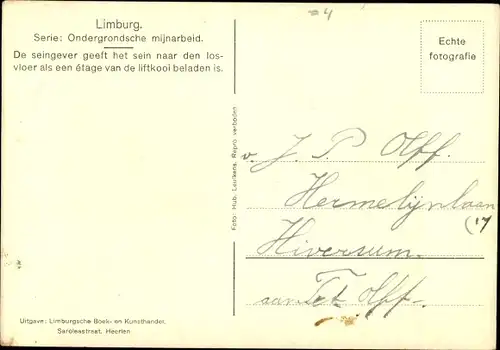 Limburg.
Serie: Ondergrondsche mijnarbeid.
De seingever geeft het sein naar den los-
vloer als een étage van de liftkooi beladen is.
=4
Echte
fotografie
Foto: Hub. Leufkens. Repro verboden
v. J. P. Olff.
Hermelijnlaan
(17
Hiversum.
aan Olff.
Uitgave: Limburgsche Boek- en Kunsthandel.
Saroleastraat. Heerlen